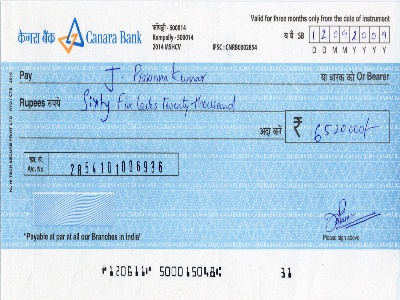 केनरा बैंक Canara Bank
कोंपल्ली - 500014
Kompally - 500014
2014 MSHCV
IFSC : CNRB0002854
Valid for three months only from the date of instrument
SB 12092009
D D M M Y Y Y Y
Pay J. Prasanna Kumar या धारक को Or Bearer
Rupees रुपये Sixty Five Lacks Twenty thousand
अदा करें ₹ 6520000/-
खा. सं.
A/c. No. 2854101006936
"Payable at par at all our Branches in India"
Please sign above
⑈120611⑈ 500015048⑆ 31